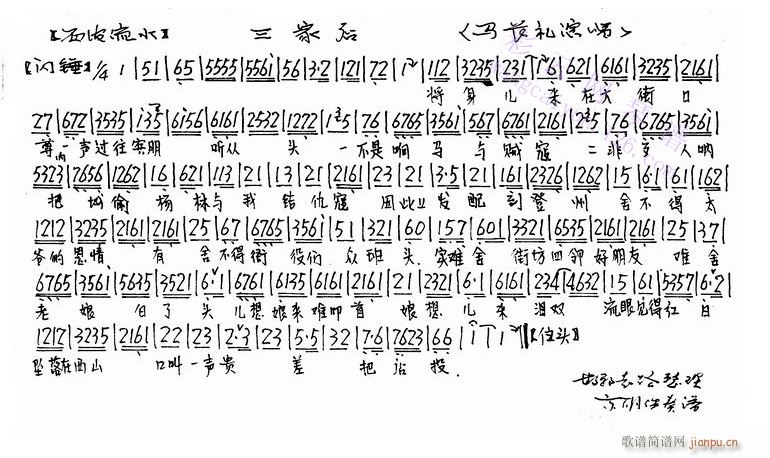 【西皮流水】 三家店 〈马长礼演唱〉
【闪锤】1/4 1 | 51 | 65 | 5555 | 5561 | 56 | 3·2 | 121 | 72 | 1 | 112 | 3235 | 231 | 16 | 621 | 6161 | 3235 | 2161 |
将身儿来在大街口
27 | 672 | 3535 | 135 | 6156 | 6161 | 2532 | 1272 | 1 5 | 76 | 6765 | 3561 | 567 | 6761 | 2161 | 2 5 | 76 | 6765 | 3561 |
尊一声过往宾朋听从头一不是响马与贼寇二非是人呐
5323 | 7656 | 1262 | 16 | 621 | 113 | 21 | 13 | 21 | 2161 | 23 | 21 | 3·5 | 21 | 161 | 2326 | 1262 | 15 | 6·1 | 61 | 162 |
把城偷杨林与我结仇寇因此上发配到登州舍不得太
1212 | 3235 | 2161 | 2161 | 25 | 67 | 6765 | 3561 | 51 | 321 | 60 | 157 | 601 | 3321 | 6535 | 2161 | 2161 | 25 | 37 |
爷的恩情有舍不得衙役们众班头实难舍街坊四邻好朋友难舍
6765 | 3561 | 5635 | 3521 | 6·1 | 6761 | 6135 | 6161 | 2161 | 21 | 2321 | 6·1 | 6161 | 234 | 4632 | 15 | 61 | 5357 | 6·2
老娘白了头儿想娘来难叩首娘想儿来泪双流眼见得红日
1212 | 3235 | 2161 | 22 | 23 | 2·3 | 23 | 5·5 | 32 | 7·6 | 7623 | 66 | 1 | 1 | 【住头】
坠落在西山口叫一声贵差把店投.
歌谱简谱网 jianpu.cn